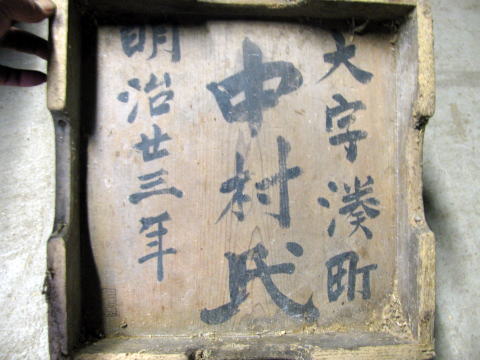 大字湊町
中村氏
明治廿三年